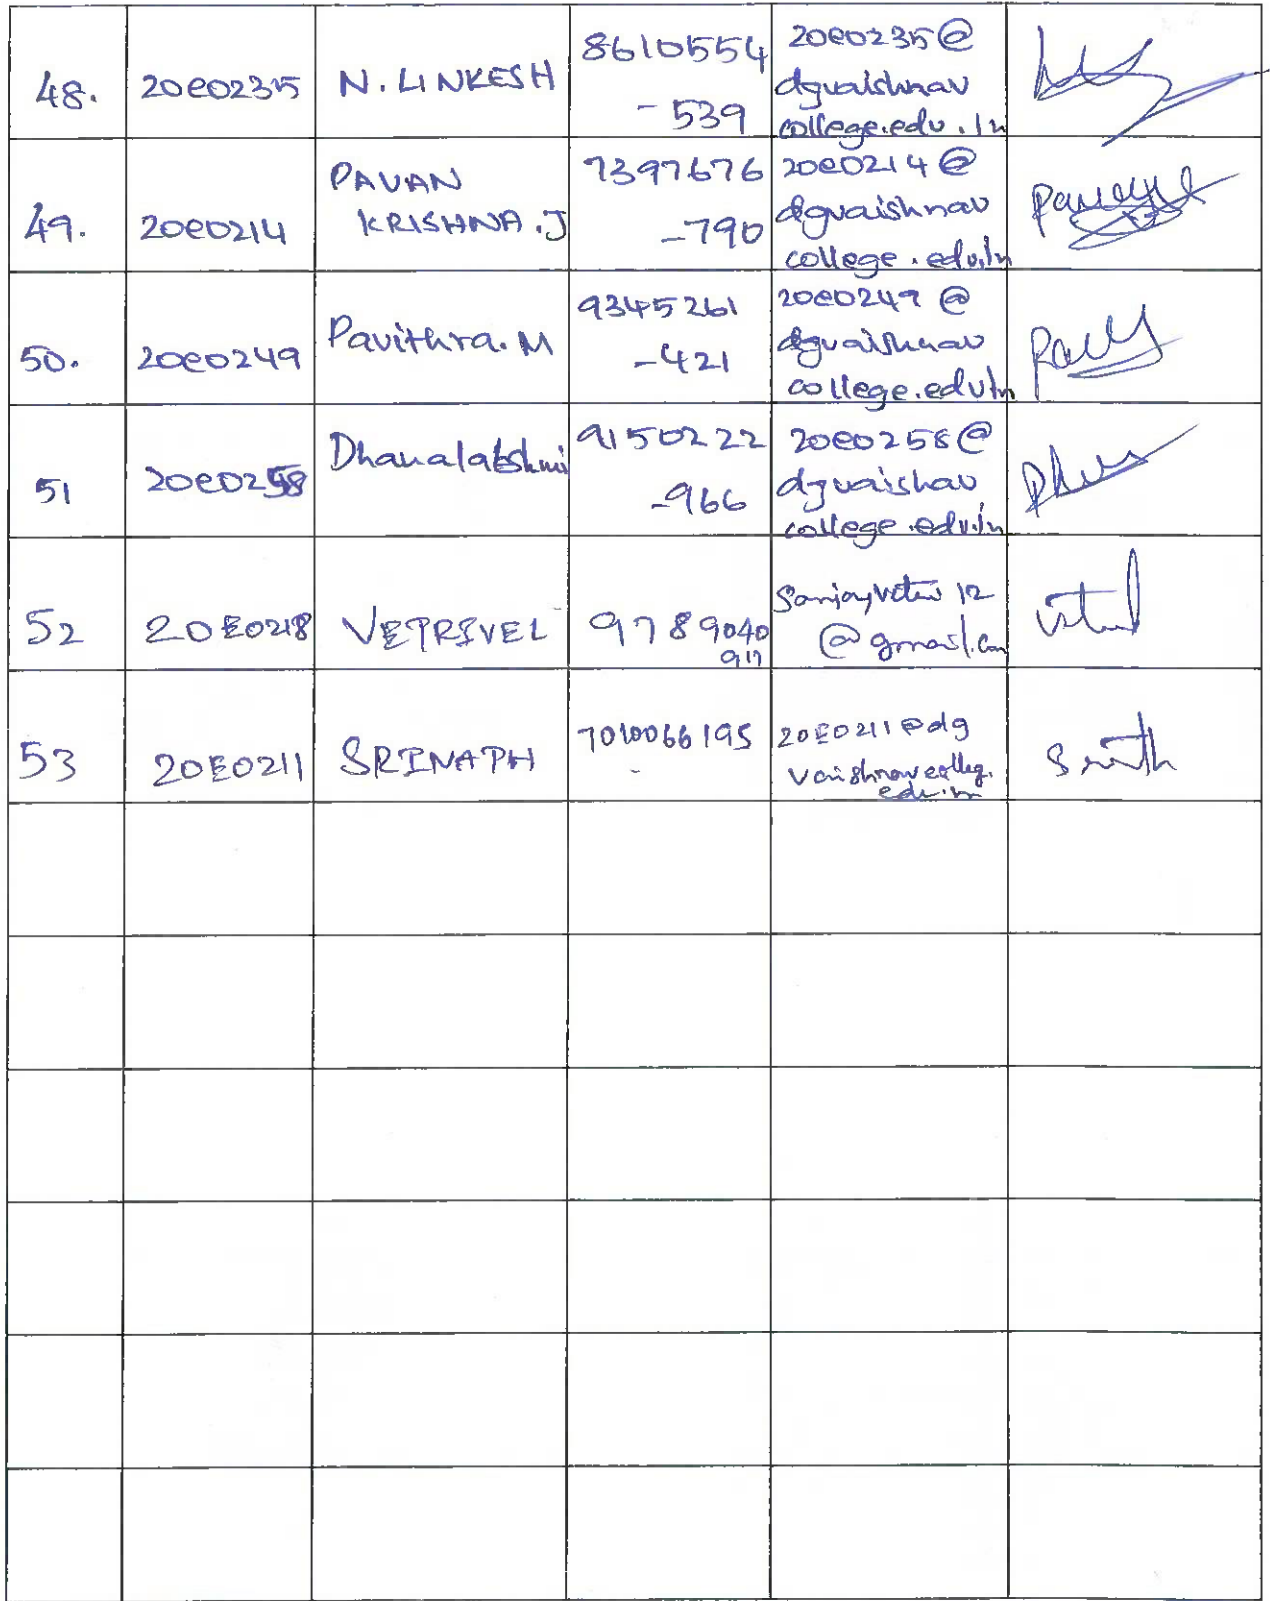 48. 20e0235 N. LINKESH 8610554 20e0235@
-539 dgvaishnav
college.edu.in
49. 20e0214 PAVAN 7397676 20e0214@
KRISHNA.J -790 dgvaishnav
college.edu.in
50. 20e0249 Pavithra.M 9345261 20e0249@
-421 dgvaishnav
college.edu.in
51 20e0258 Dhanalakshmi 9150222 20e0258@
-966 dgvaishav
college.edu.in
52 20E0218 VETRIVEL 9789040
@gmail.com
53 20E0211 SRINATH 7010066195 20E0211@dg
vaishnavcolleg.
edu.in
Srinath